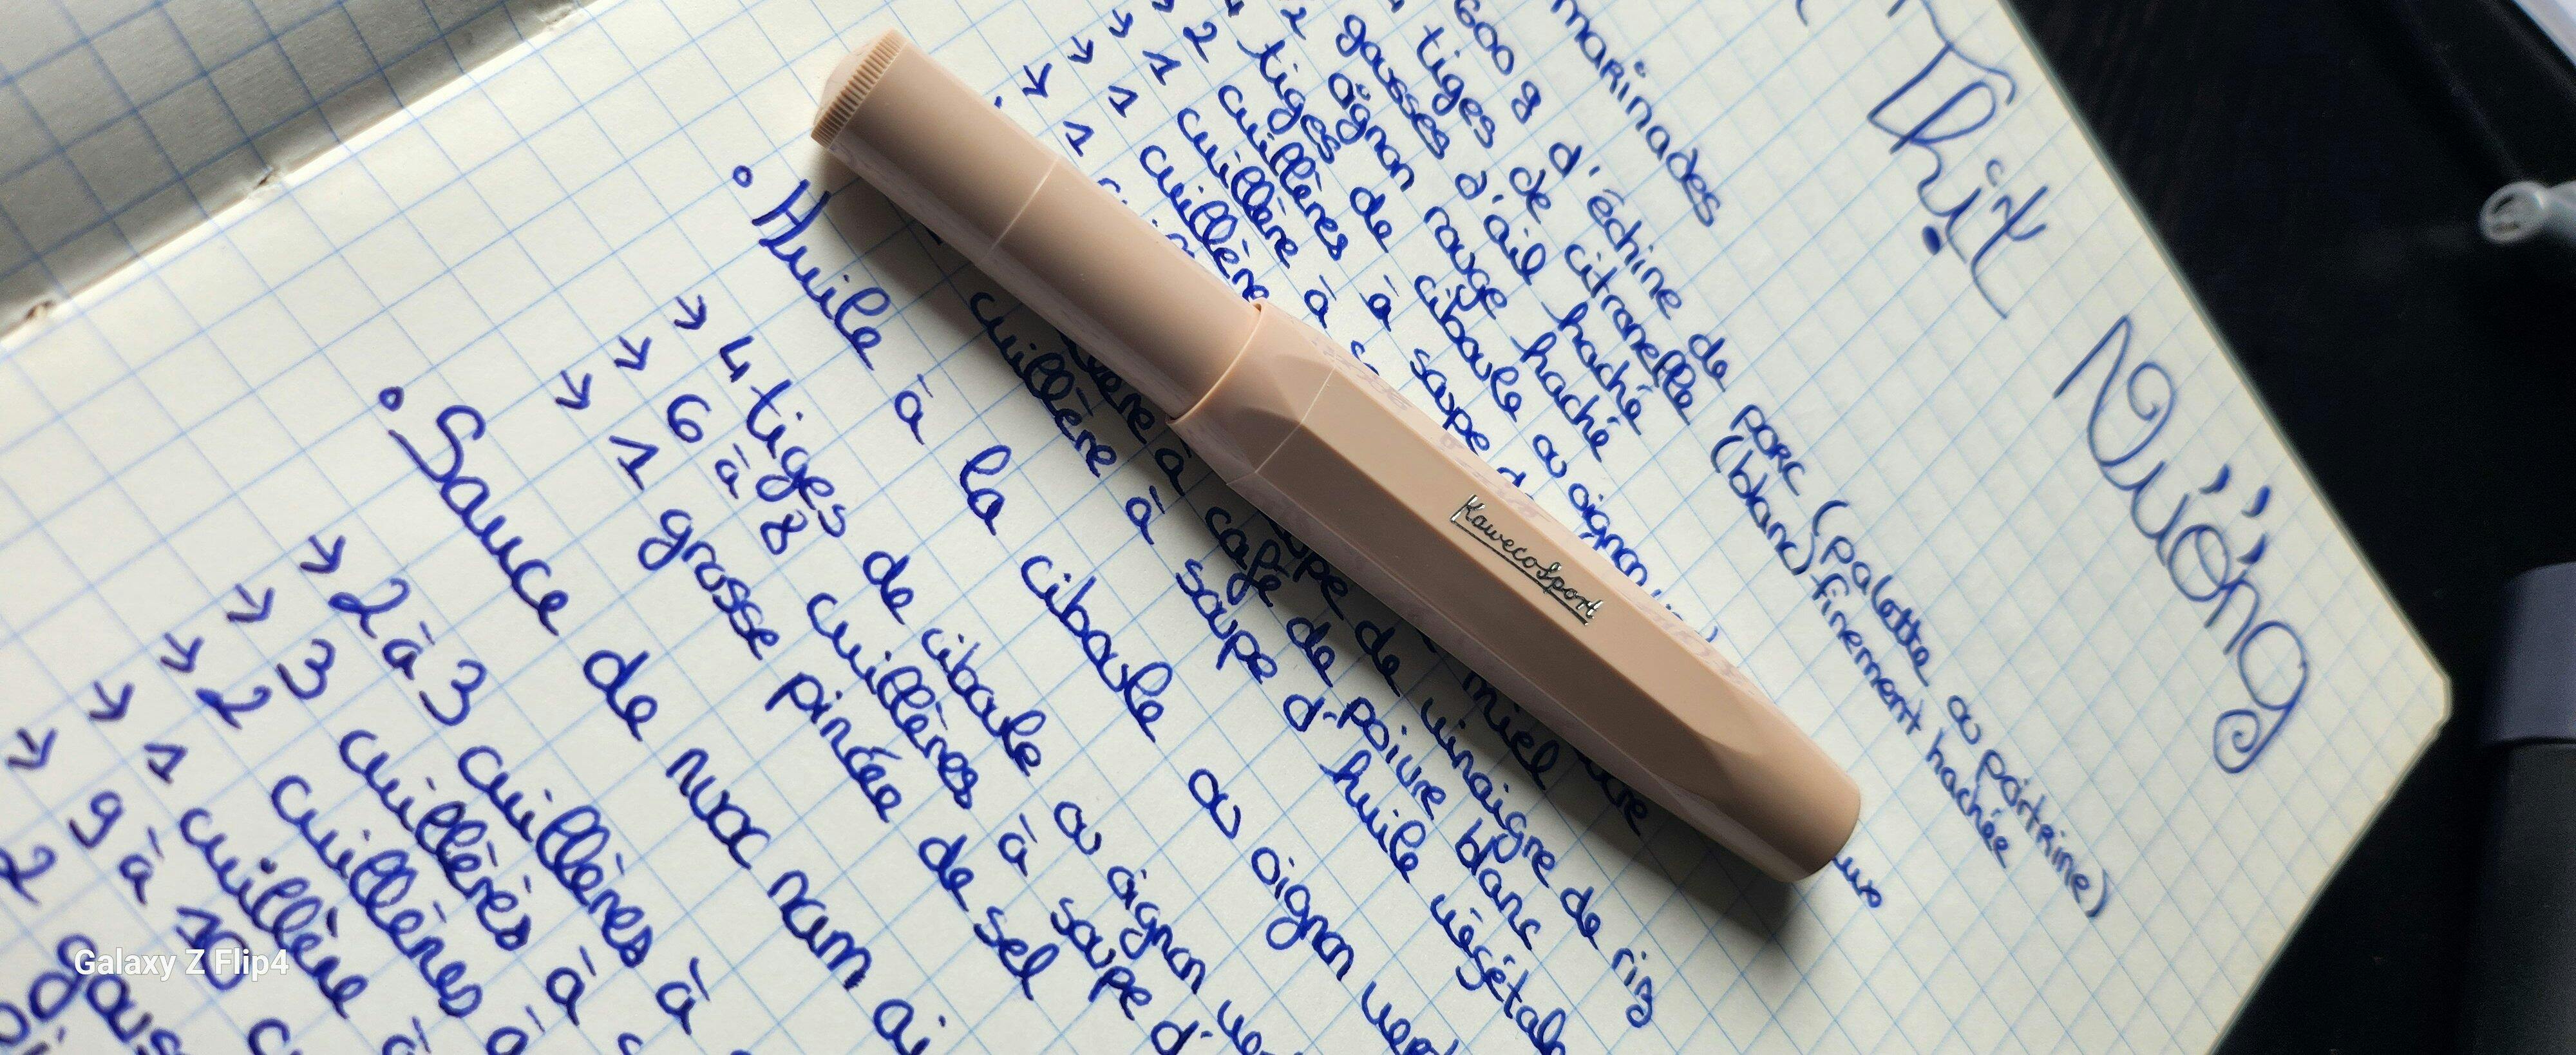 Thịt Nướng
marinades
600 g d'échine de porc (palette ou poitrine)
tiges de citronelle (blanc) finement hachée
2 gousses d'ail haché
oignon rouge haché
4 tiges de ciboule ou oignon
2 cuillères à soupe
1 cuillère à s
1 cuillère
1
miel
de vinaigre de riz
à café de poivre blanc
cuillère à soupe d'huile végétal
• Huile à la ciboule ou oignon vert
→ 4 tiges de ciboule ou oignon ve
→ 6 à 8 cuillères à soupe d'
→ 1 grosse pincée de sel
• Sauce de nuoc nam ai
→ 2 à 3 cuillères à
→ 3 cuillères à s
→ 2 cuillères à
→ 1 cuillère à
→ 9 à 10 c
2 gous
KawecoSport
Galaxy Z Flip4